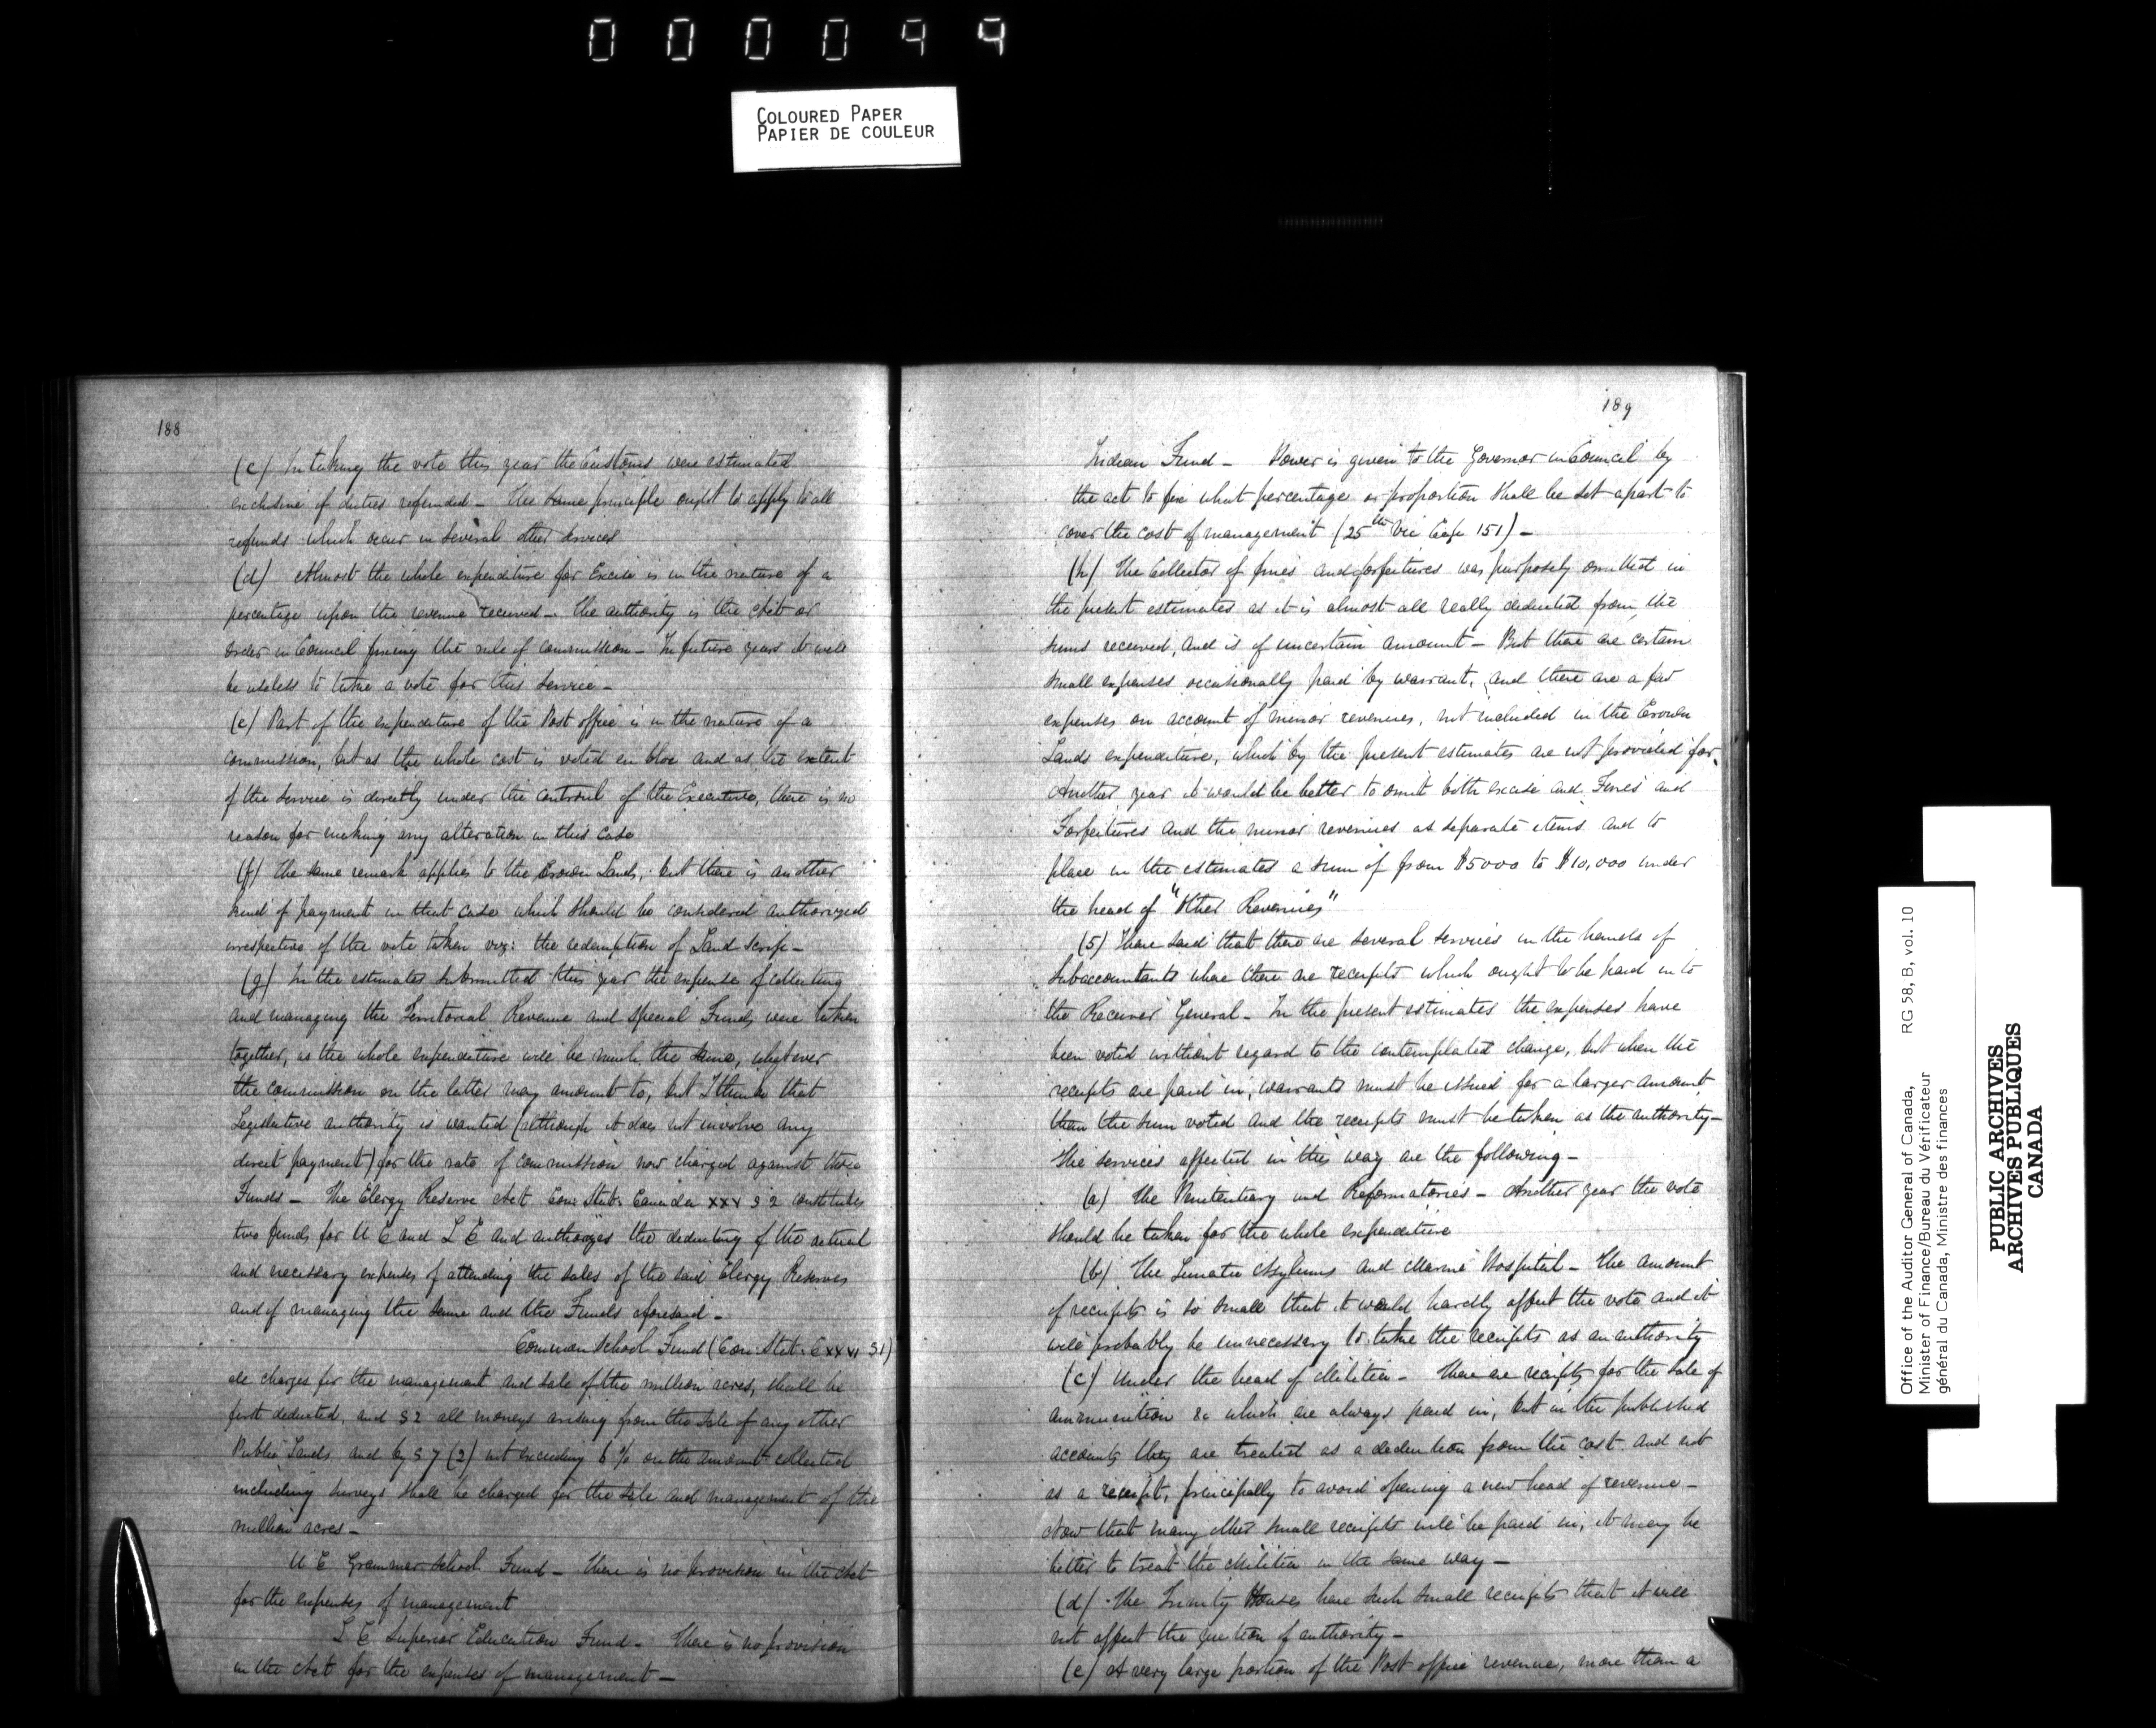 000099
COLOURED PAPER
PAPIER DE COULEUR
188
(c) In taking the vote this year the Customs were estimated
exclusive of duties refunded – The same principle ought to apply to all
refunds which occur in several other services
(d) Almost the whole expenditure for Excise is in the nature of a
percentage upon the revenue received – The authority is the Act or
Order in Council fixing the rule of commission – In future years it will
be useless to take a vote for this service –
(e) Part of the expenditure of the Post office is in the nature of a
commission, but as the whole cost is voted en bloc and as the extent
of the service is directly under the controul of the Executive, there is no
reason for making any alteration in this case
(f) The same remark applies to the Crown Lands, but there is another
kind of payment in that case which should be considered authorized
irrespective of the vote taken viz: the redemption of Land Scrip –
(g) In the estimates submitted this year the expense of collecting
and managing the Territorial Revenue and Special Funds were taken
together, as the whole expenditure will be much the same, whatever
the commission on the latter may amount to, but I think that
Legislative authority is wanted (although it does not involve any
direct payment) for the rate of commission now charged against these
Funds – The Clergy Reserve Act Con: Stat: Canada XXV S 2 constitutes
two funds for U C and L C and authorizes the deducting of the actual
and necessary expenses of attending the sales of the said Clergy Reserves
and of managing the same and the Funds aforesaid –
Common School Fund (Con: Stat: C XXVI S1)
all charges for the management and sale of the million acres, shall be
first deducted, and S 2 all moneys arising from the sale of any other
Public Lands and by S 7 (2) not exceeding 6 % on the amount collected
including surveys shall be charged for the sale and management of the
million acres –
U C Grammar School Fund – There is no provision in the Act
for the expenses of management
L C Superior Education Fund – There is no provision
in the Act for the expenses of management –
189
Indian Fund – Power is given to the Governor in Council by
the act to fix what percentage or proportion shall be set apart to
cover the cost of management (25th Vic Cap 151) –
(h) The Collector of fines and forfeitures was purposely omitted in
the present estimates as it is almost all really deducted from the
sums received, and is of uncertain amount – But there are certain
small expenses occasionally paid by warrant, and there are a few
expenses on account of minor revenues, not included in the Crown
Lands expenditure, which by the present estimates are not provided for.
Another year it would be better to omit both excise and Fines and
Forfeitures and the minor revenues as separate items and to
place in the estimates a sum of from $5000 to $10,000 under
the head of "Other Revenues"
(5) I have said that there are several services in the hands of
Subaccountants where there are receipts which ought to be paid in to
the Receiver General – In the present estimates the expenses have
been voted without regard to the contemplated change, but when the
receipts are paid in, warrants must be issued for a larger amount
than the sum voted and the receipts must be taken as the authority –
The services affected in this way are the following –
(a) The Penitentiary and Reformatories – Another year the vote
should be taken for the whole expenditure
(b) The Lunatic Asylums and Marine Hospital – The amount
of receipts is so small that it would hardly affect the vote and it
will probably be unnecessary to take the receipts as an authority
(c) Under the head of Militia – There are receipts for the sale of
ammunition &c which are always paid in, but in the published
accounts they are treated as a deduction from the cost and not
as a receipt, principally to avoid opening a new head of revenue –
Now that many other small receipts will be paid in, it may be
better to treat the Militia in the same way –
(d) The Trinity Houses have such small receipts that it will
not affect the question of authority –
(e) A very large portion of the Post office revenue, more than a
Office of the Auditor General of Canada, RG 58, B, vol. 10
Minister of Finance/Bureau du Vérificateur
général du Canada, Ministre des finances
PUBLIC ARCHIVES
ARCHIVES PUBLIQUES
CANADA